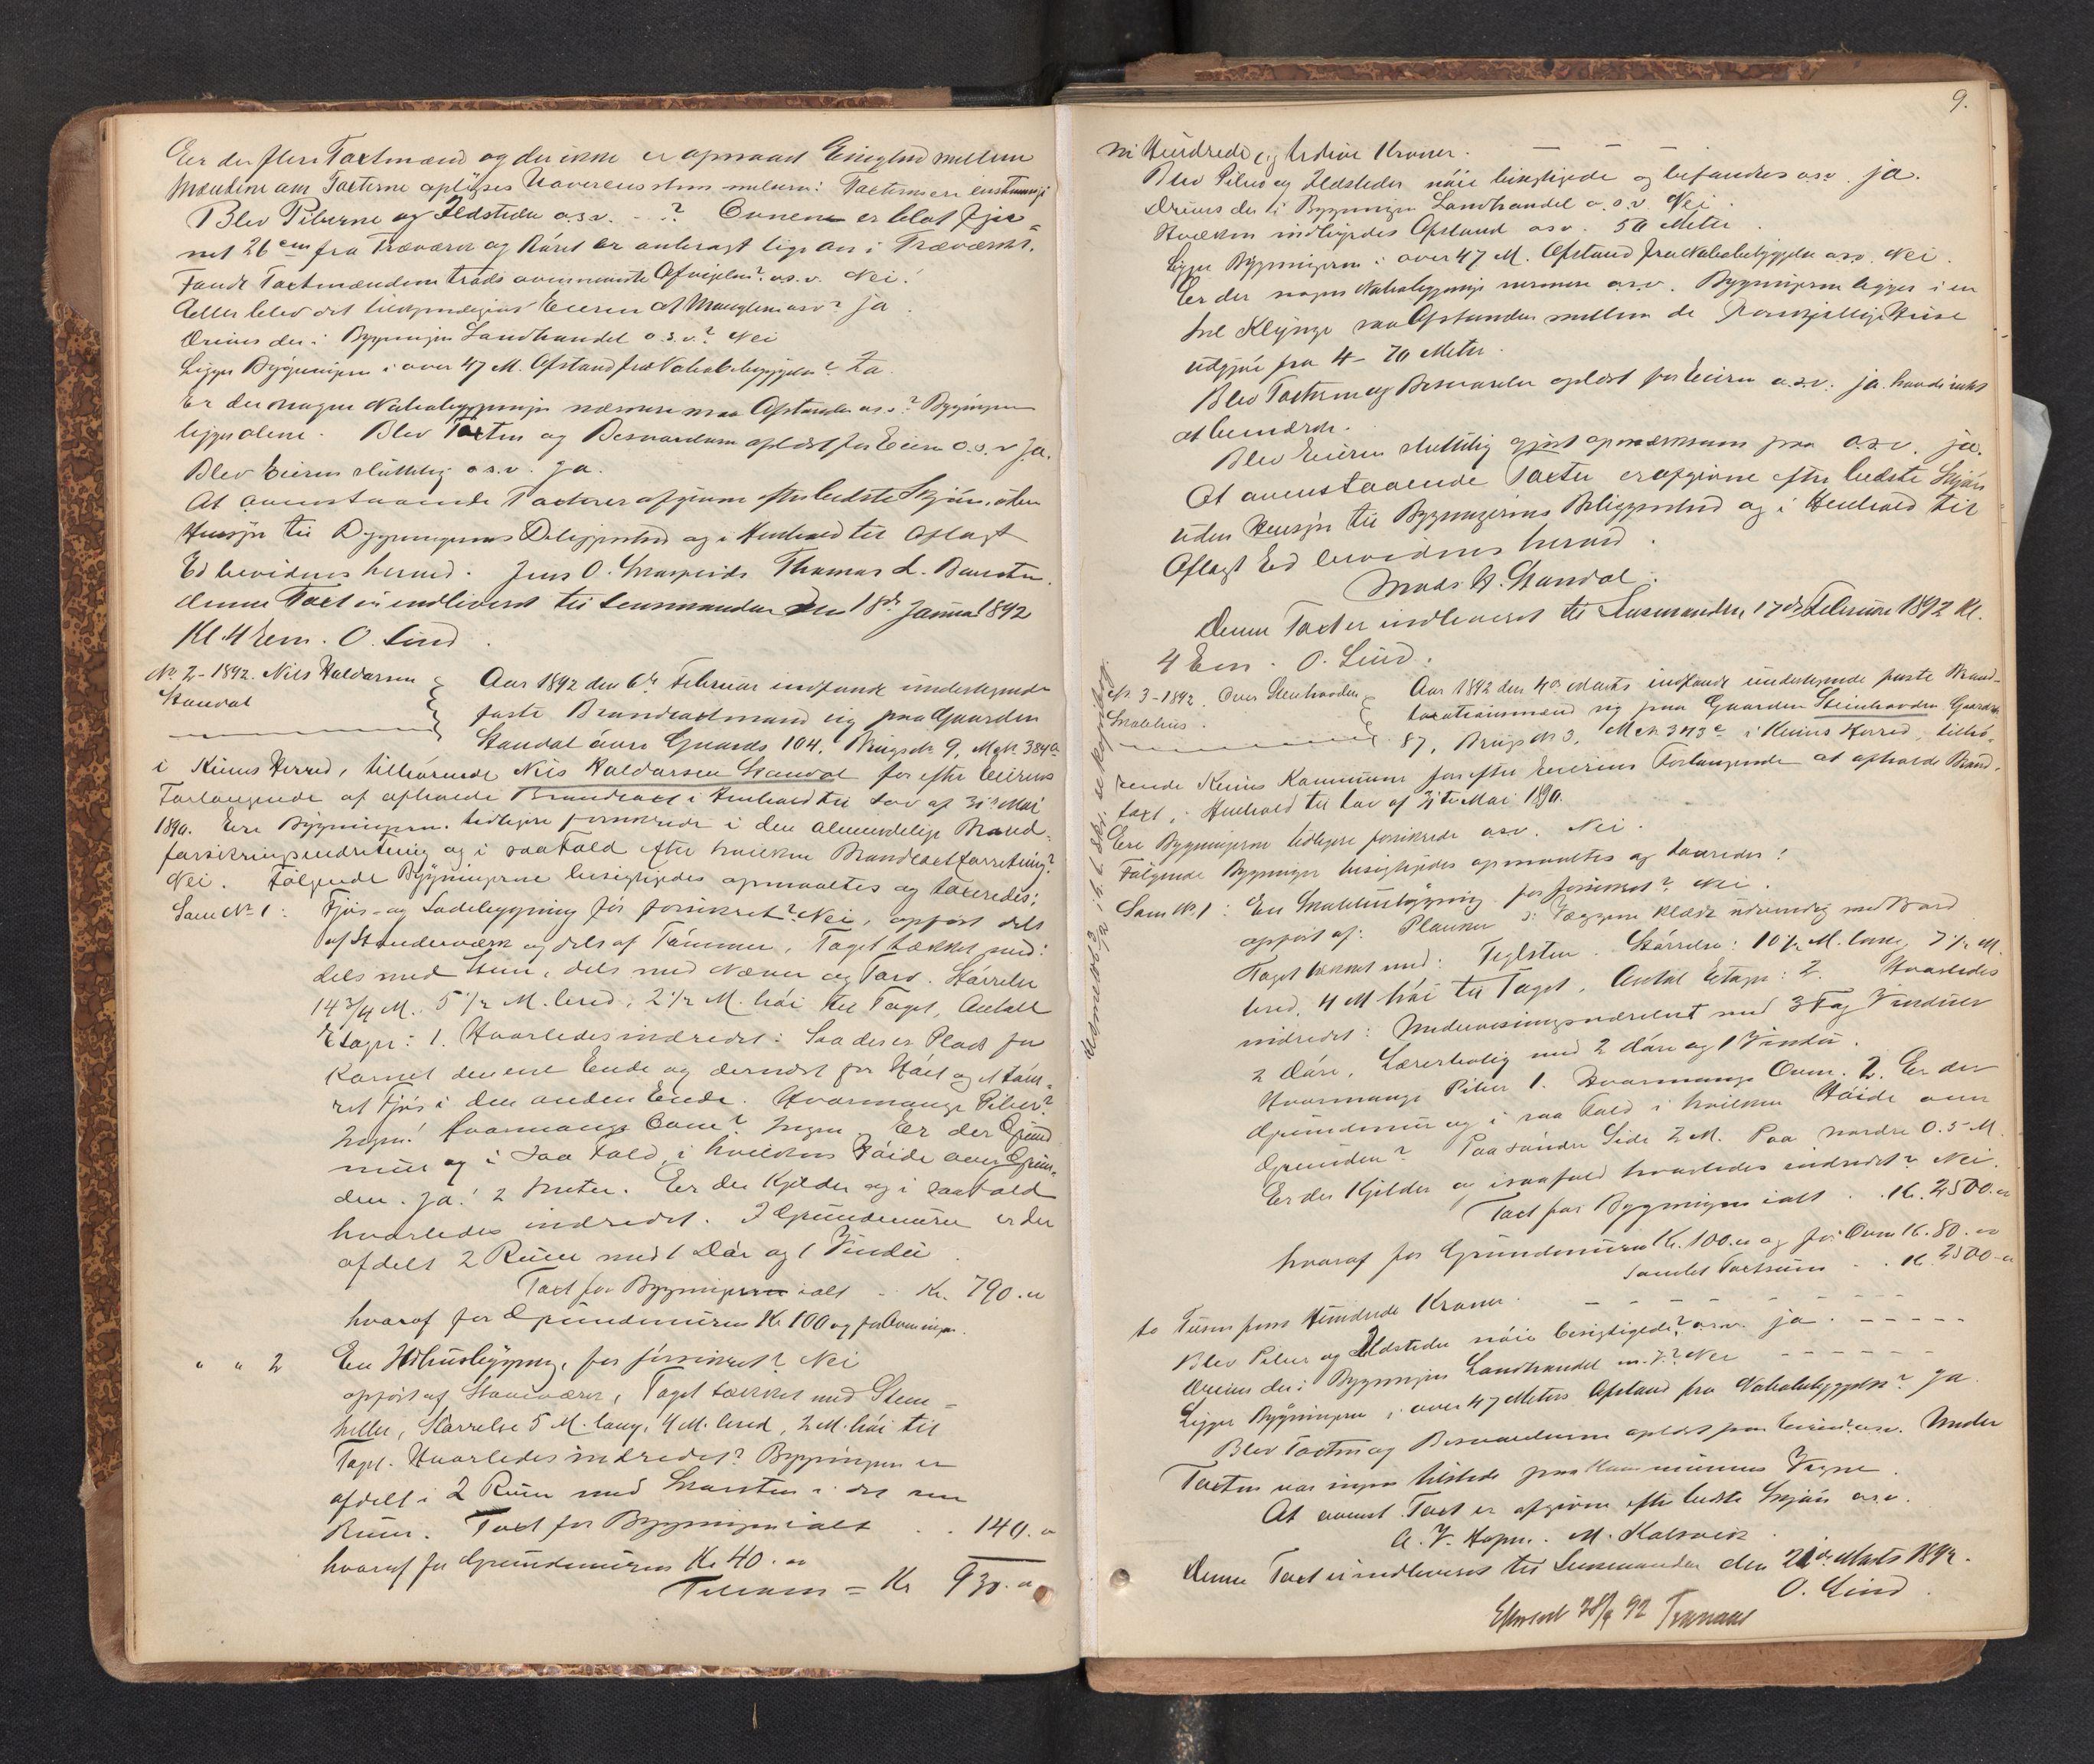 Er der flere Taxtmænd og der ikke er opnaaet Enighed mellem
Mændene om Taxterne oplyses Uoverensstem melsen: Taxterne ere eenstemmige
Blev Piberne og Ildsteder o.s.v. - ? Ovnene er blot fjer=
net 26 cm fra Træværk og Røret er anbragt lige an i Træværket.
Fandt Taxtmændene trods ovennævnte Afvigelser? o.s.v. Nei.
Eller blev det tilkjendegivet Eieren at Manglerne o.s.v? Ja
Drives der i Bygningen Landhandel o.s.v.? Nei
Ligger Bygningerne i over 47 M. Afstand fra Nabobebyggelse? Ja.
Er der nogen Nabobygninger nærmere maa Afstanden o.s.v? Bygningen
ligger alene. Blev Taxten og Besvarelsen oplæst for Eieren o.s.v Ja.
Blev Eieren sluttelig o.s.v. Ja.
At ovenstaaende Taxter er afgivne efter bedste Skjøn, uden
Hensyn til Bygningernes Beliggenhed og i Henhold til Aflagt
Ed bevidnes herved. Jens O. Thomas L.
Denne Taxt er indleveret til Lensmanden den 18de Januar 1892
Kl. 4 Eem. O. Lind.
No 2 - 1892. Nils Haldorsen
Standal
Aar 1892 den 6te Februar indfandt undertegnede
faste Brandtaxtmand sig paa Gaarden
Standal Gaards 104. Brugs No 9, M No 384a
i Kinns Herred, tilhørende Nils Haldorsen Standal for efter Eierens
Forlangende at afholde Brandtaxt i Henhold til Lov af 31te Mai
1890. Ere Bygningerne tidligere forsikrede i den almindelige Brand-
forsikringsindretning og i saa Fald efter hvilken Brandtaxtforretning?
Nei. Følgende Bygningerne besigtigedes opmaaltes og taxeredes:
Sam No 1: Fjøs- og Ladebygning før forsikret? Nei, opført dels
af Stenderværk og dels af Tømmer, Taget tækket med:
dels med Steen, dels med Næver og Torv. Størrelse
14 3/4 M. 5 1/2 M. bred, 2 1/2 M. høi til Taget, Antall
Etager: 1. Hvorledes indredet: Saa der er Plads for
Kornet den ene Ende og dernæst for Høet og et tøm-
ret Fjøs i den anden Ende. Hvormange Piber?
Ingen! hvormange Ovne? Ingen. Er der Grund
mur og i saa Fald, i hvilken Høide over Grun-
den. Ja! 2 Meter. Er der Kjelder og i saa Fald
hvorledes indredet. I Grundmuren er der
afdelt 2 Rum med 1 Dør og 1 Vindu.
Taxt for Bygningen ialt - Kr. 790.00
hvoraf for Grundmuren Kr 100 og for Ovne ingen.
" " 2 En Ildhusbygning, før forsikret? Nei
opført af Stavværk, Taget tækket med Steen=
heller, Størrelse 5 M. lang, 4 M. bred, 2 M. høi til
Taget. Hvorledes indredet? Bygningen er
afdelt i 2 Rum med Skorsten i det ene
Rum. Taxt for Bygningen ialt . . 140.00
hvoraf for Grundmuren Kr 40.00
Tilsam = Kr 930.00
9.
ni Hundrede og tredive Kroner.
Blev Piber og Ildsteder nøie besigtigede og befandtes o.s.v. ja.
Drives der i Bygningen Landhandel o.s.v. Nei.
Hvilken indbyrdes Afstand o.s.v. 50 Meter.
Ligger Bygningerne i over 47 M. Afstand fra Nabobebyggelse o.s.v. Nei.
Er der nogen Nabobygninger nærmere o.s.v. Bygningerne ligger i en
hel Klynge saa Afstanden mellem de forskjellige Huse
udgjør fra 4 - 70 Meter.
Blev Taxterne og Besvarelse oplæst for Eieren o.s.v. ja. havde intet
at bemærke.
Blev Eieren sluttelig gjort opmærksom paa o.s.v. ja.
At ovenstaaende Taxter er afgivne efter bedste Skjøn
uden Hensyn til Bygningernes Beliggenhed og i Henhold til
Aflagt Ed bevidnes herved.
Mads Standal.
Denne Taxt er indleveret til Lensmanden 17de Februar 1892 Kl.
4 Em. O. Lind.
No 3 - 1892. Over Steinhovden
Skolehus.
Aar 1892 den 4de Marts indfandt undertegnede faste Brand-
taxationsmænd sig paa Gaarden Steinhovden Gaards No
87, Brugs No 3, M No 343c i Kinns Herred, tilhø-
rende Kinns Kommune for efter Eierens Forlangende at afholde Brand-
taxt, i Henhold til Lov af 31te Mai 1890.
Ere Bygningerne tidligere forsikrede o.s.v. Nei.
Følgende Bygninger besigtigedes opmaaltes og taxeredes!
Sam No 1: En Skolehusbygning før forsikret? Nei.
opført af: Planker Væggene klædt udvendig med Bord
Taget tækket med: Teglsten. Størrelse: 10 1/2 M. lang, 7 1/2 M.
bred, 4 M høi til Taget, Antal Etager: 2. Hvorledes
indredet: Undervisningsværelset med 3 Fag Vinduer
2 Døre, Lærerbolig med 2 døre og 1 Vindu.
Hvormange Piber 1. Hvormange Ovne. 2. Er der
Grundmur og i saa Fald i hvilken Høide over
Grunden? Paa søndre Side 2 M. Paa nordre 0.5 M.
Er der Kjelder og isaafald hvorledes indredet? Nei.
Taxt for Bygningen ialt . . K. 2500.00
hvoraf for Grundmuren K. 100.00 og for Ovne K. 80.00
Samlet Taxtsum . . K. 2500.00
to Tusen fem Hundrede Kroner.
Blev Piber og Ildsteder nøie besigtigede? o.s.v. ja.
Drives der i Bygningen Landhandel m.v.? Nei
Ligger Bygningerne i over 47 Meters Afstand fra Nabobebyggelse? Ja.
Blev Taxten og Besvarelserne oplæst for Eieren o.s.v. Under
Taxten var ingen tilstede paa Kommunens Vegne.
At ovenst. Taxt er afgivne efter bedste Skjøn o.s.v.
A. V. M. Kalsvik
Denne Taxt er indleveret til Lensmanden den 21de Marts 1892.
O. Lind
Efterseet 28/9 92